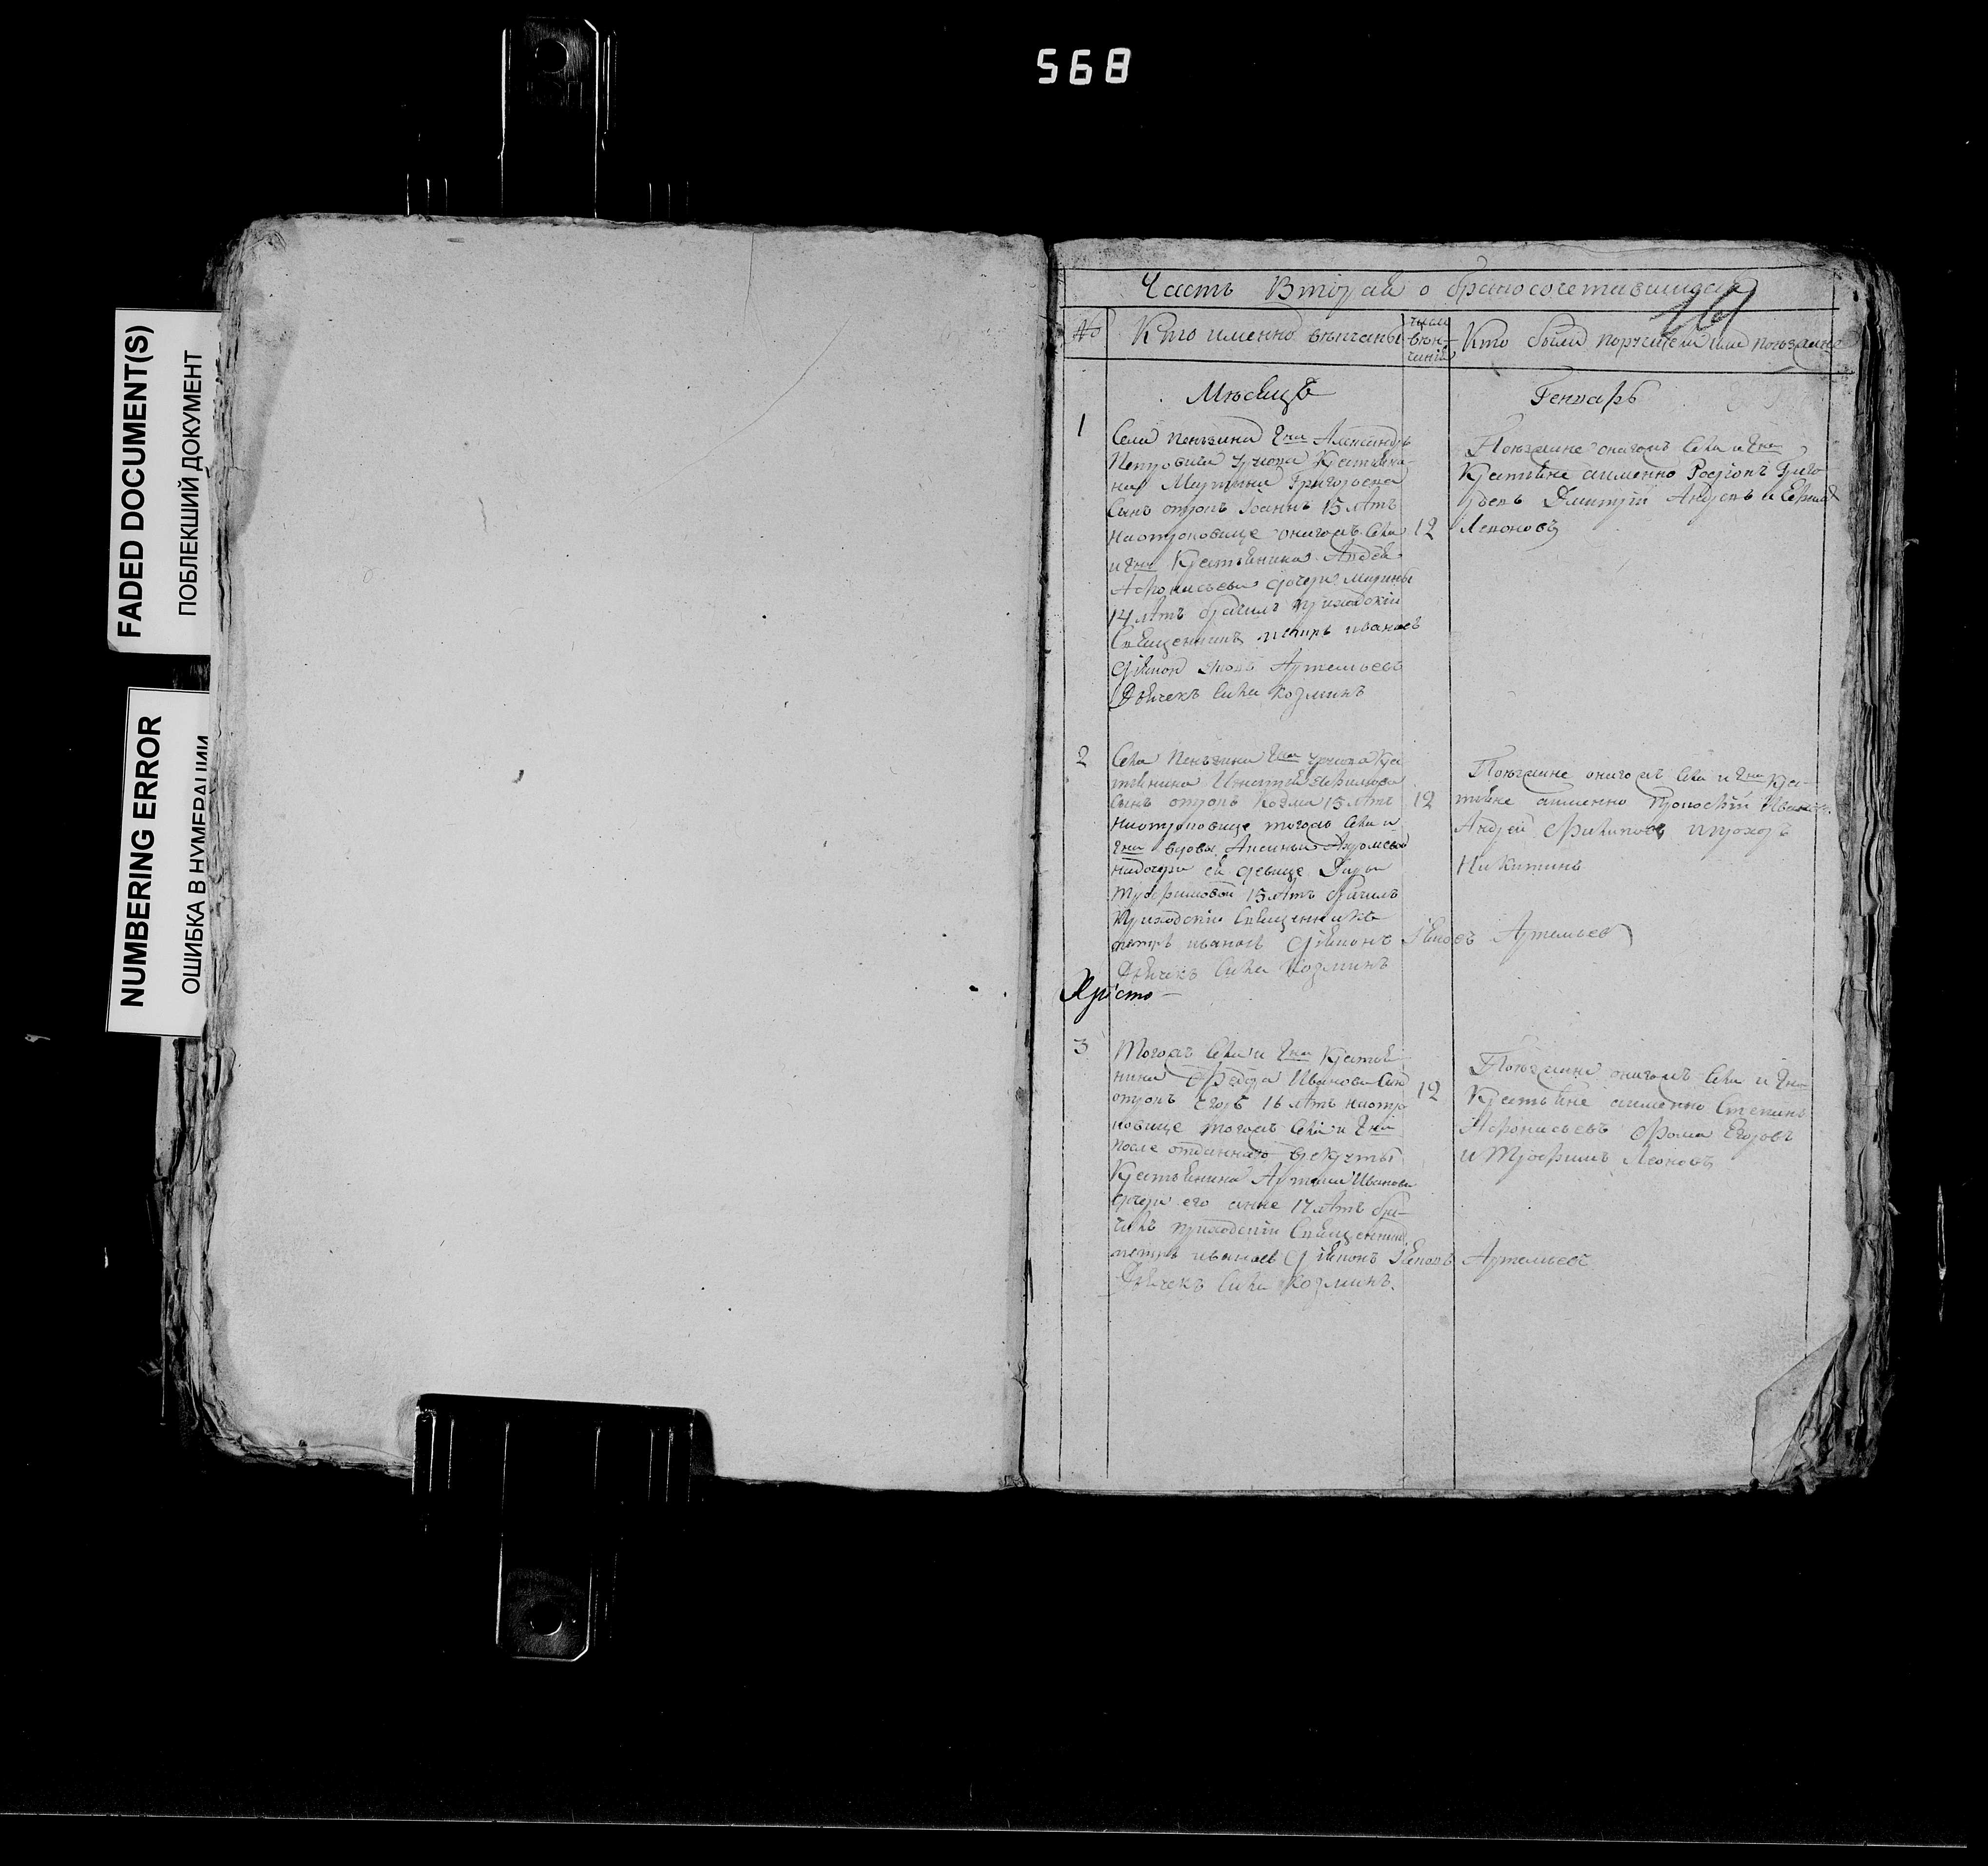 568
FADED DOCUMENT(S)
ПОБЛЕКШИЙ ДОКУМЕНТ
NUMBERING ERROR
ОШИБКА В НУМЕРАЦИИ
Часть Вторая о бракосочетавшихся
161
№ Кто именно венчаны число венчания Кто были поручители или поезжане
Месяцъ Генварь
1
Села гна Александръ
Петровича Крестьяни
на Мартина Григорьева
Сынъ отрокъ Іоаннъ 15 летъ
наотроковице оногожъ села 12
и гна Крестьянина Андрея
Афонасьева дочери Марины
14 летъ брачилъ приходскій
Священникъ петръ ивановъ
діаконъ Артемьевъ
Дьячекъ сила козминъ
Поезжане оногожъ села и гна
Крестьяне аименно Родіонъ Григо
рьевъ Дмитрій Андревъ и
Леоновъ
2
Села гна Кре
стьянина Игнатия
сынъ отрокъ Козма 15 летъ 12
наотроковице тогожъ села и
гна вдовы Аксиньи
надочери ея девице Дарьи
Трофимовой 15 летъ брачилъ
Приходскій Священникъ
петръ ивановъ діаконъ Яковъ Артемьевъ
Дьячекъ сила Козминъ
Поезжане оногожъ села и гна Кре
стьяне аименно Иванов
Андрей Филиповъ ипрохоръ
Никитинъ
Христо-
3
Тогожъ села и гна Крестья
нина Федора Иванова сын
отрокъ Егоръ 16 летъ наотро
ковице тогожъ села и гна 12
после отданнаго врекруты
Крестьянина Иванова
дочери его анне 17 летъ бра
чилъ приходскій Священник
петръ ивановъ діаконъ Яковъ Артемьевъ
Дьячекъ сила Козминъ.
Поезжане оногожъ села и гна
Крестьяне аименно Степанъ
Афонасьевъ Фома Егоровъ
и Трофимъ Леоновъ